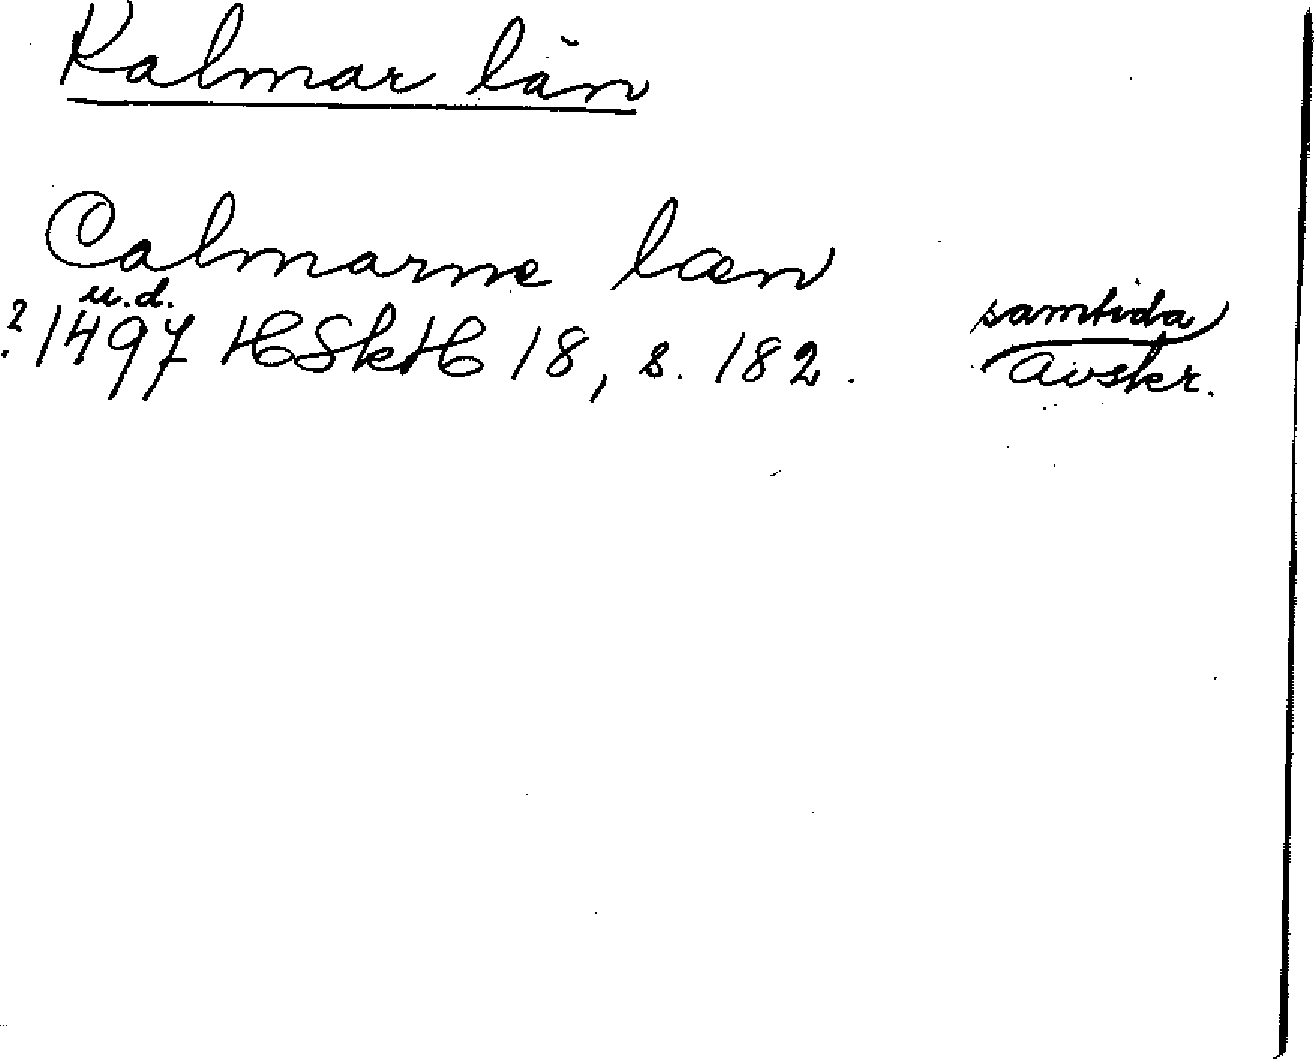 Kalmar län
Calmarne læn
u.d.
? 1497 HSkH 18, s. 182. samtida
avskr.